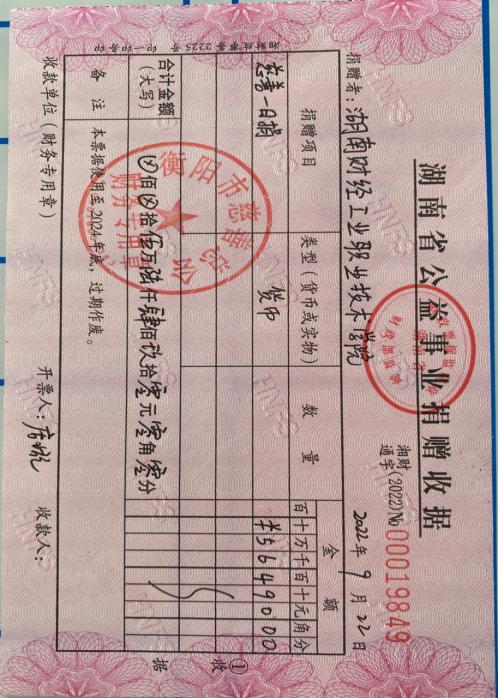 湖南省公益事业捐赠收据
湘财通字(2022)No 00019849
捐赠者：湖南财经工业职业技术学院
2022年9月22日
捐赠项目 类型（货币或实物） 数量 金额
百十万千百十元角分
慈善一日捐 货币 ¥5649000
合计金额（大写） 佰 拾伍万陆仟肆佰玖拾零元零角零分
备注 本票据使用至2024年底，过期作废。
收款单位（财务专用章） 开票人： 收款人：
①
收
据
衡阳市慈善总会
财务专用章
HNFS